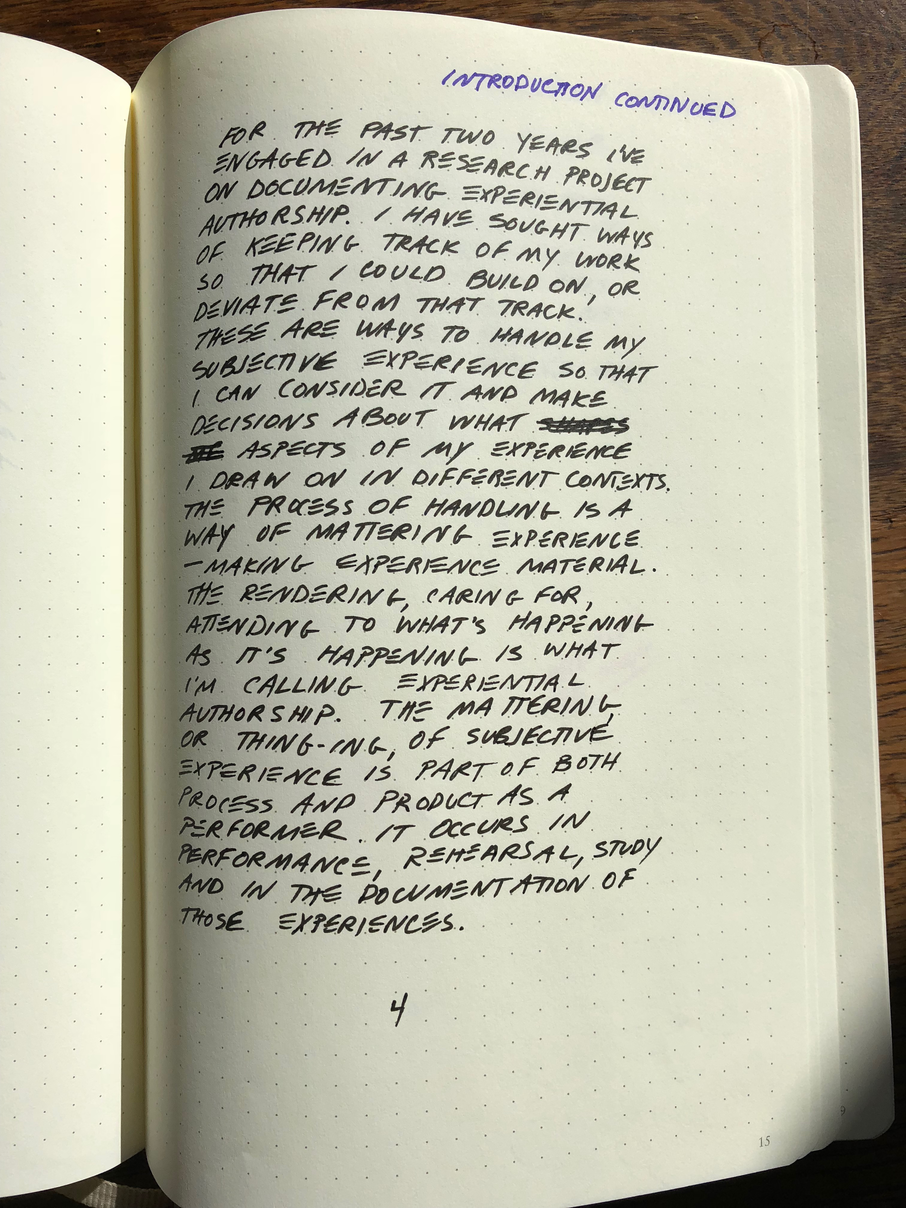 INTRODUCTION CONTINUED
FOR THE PAST TWO YEARS I'VE
ENGAGED IN A RESEARCH PROJECT
ON DOCUMENTING EXPERIENTIAL
AUTHORSHIP. I HAVE SOUGHT WAYS
OF KEEPING TRACK OF MY WORK
SO THAT I COULD BUILD ON, OR
DEVIATE FROM THAT TRACK.
THESE ARE WAYS TO HANDLE MY
SUBJECTIVE EXPERIENCE SO THAT
I CAN CONSIDER IT AND MAKE
DECISIONS ABOUT WHAT
ASPECTS OF MY EXPERIENCE
I DRAW ON IN DIFFERENT CONTEXTS.
THE PROCESS OF HANDLING IS A
WAY OF MATTERING EXPERIENCE
-MAKING EXPERIENCE MATERIAL.
THE RENDERING, CARING FOR,
ATTENDING TO WHAT'S HAPPENING
AS IT'S HAPPENING IS WHAT
I'M CALLING EXPERIENTIAL
AUTHORSHIP. THE MATTERING,
OR THING-ING, OF SUBJECTIVE
EXPERIENCE IS PART OF BOTH
PROCESS AND PRODUCT AS A
PERFORMER. IT OCCURS IN
PERFORMANCE, REHEARSAL, STUDY
AND IN THE DOCUMENTATION OF
THOSE EXPERIENCES.
4
15
9